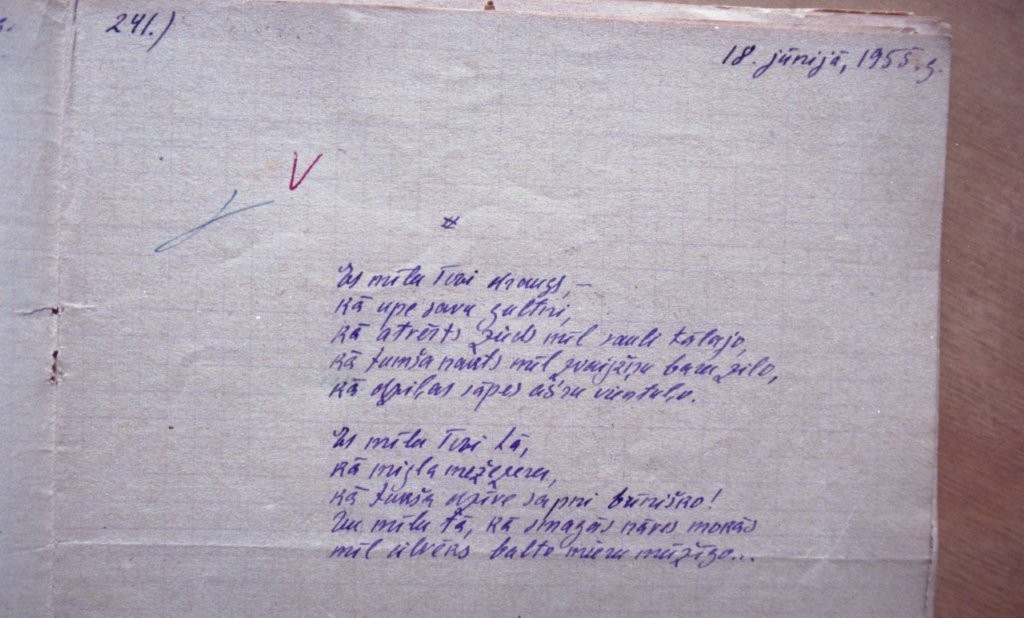 241.)
18. jūnijā, 1955. g.
V
*
Es mīlu Tevi draugs, –
kā upe savu gultni,
kā atvērts zieds mīl sauli tālajo,
kā tumša nakts mīl zvaigžņu baru zilo,
kā dziļas sāpes ašaru vientuļo.
Es mīlu Tevi tā,
kā migla mežezeru,
kā tukša dzīve sapni būrišķo!
Un mīlu tā, kā smagās nāves mokās
mīl cilvēks balto mieru mūžīgo...